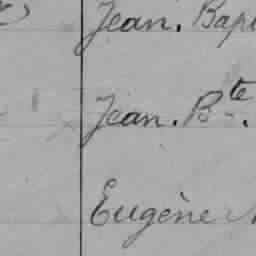 Jean. Bap
Jean. Bte.
Eugène